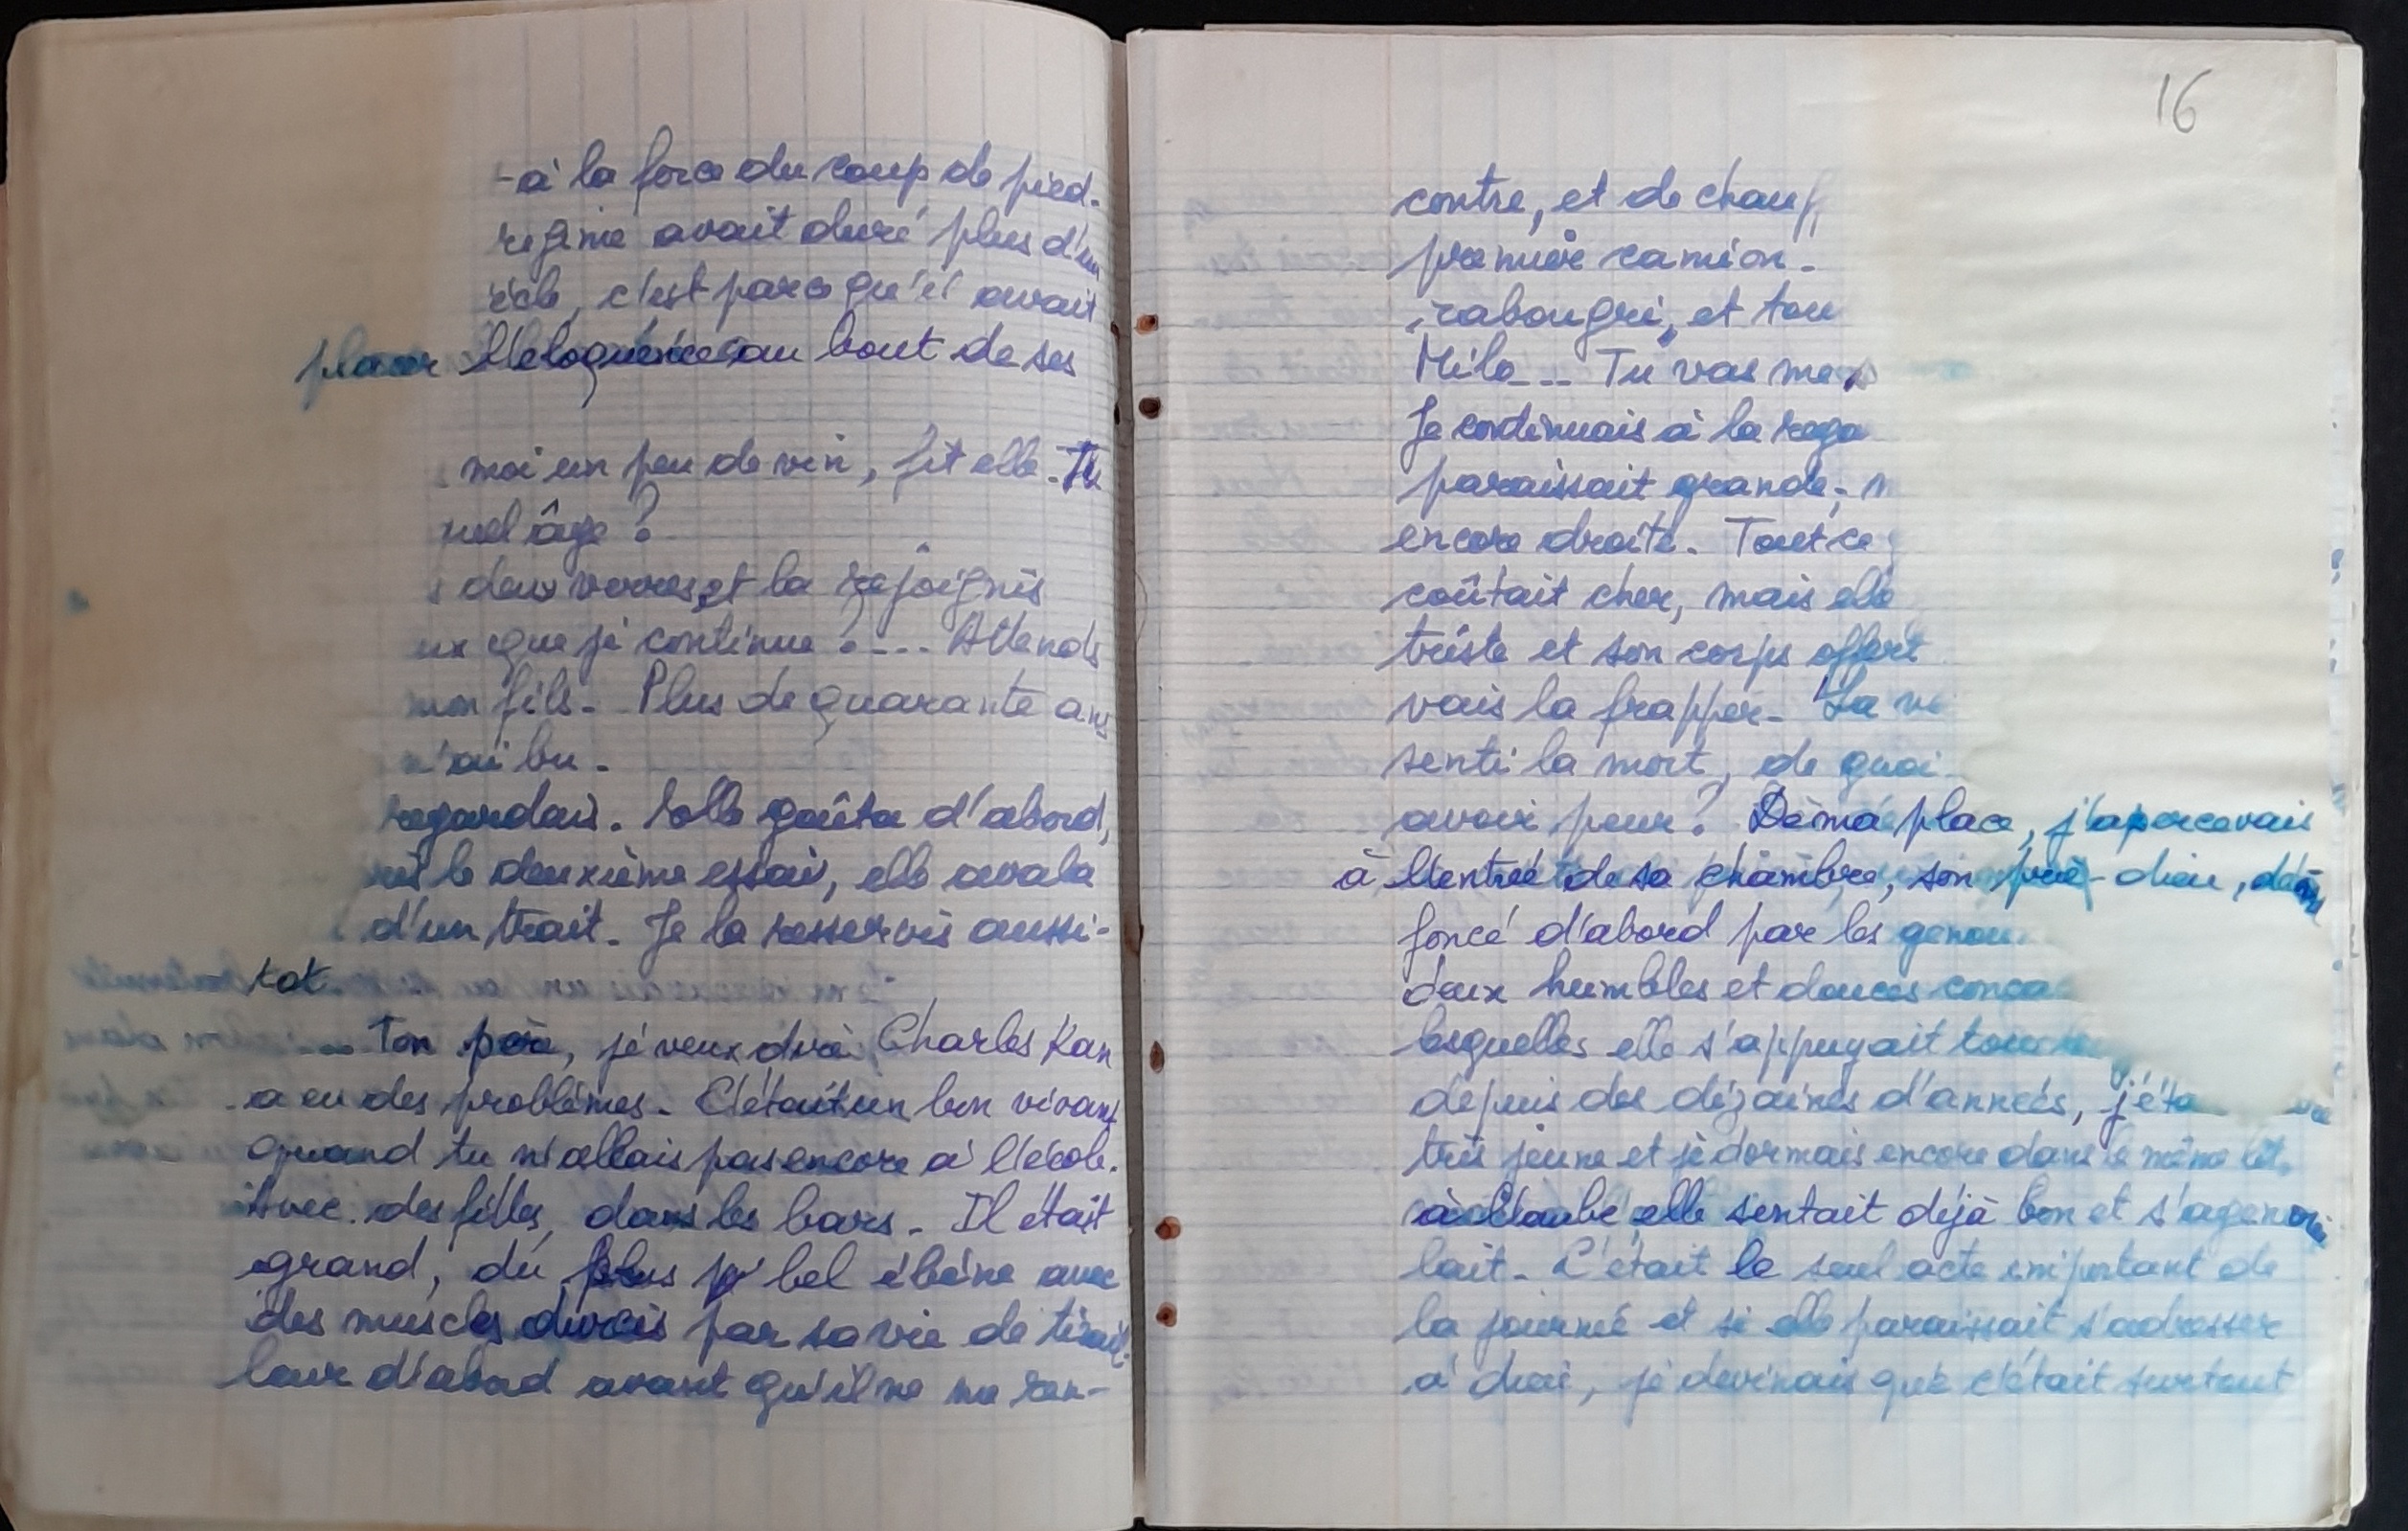 -à la force du coup de pied.
régime avait duré plus d'un
c'est parce qu'il avait
placer l'éloquence au bout de ses
moi un peu de vin, fit elle. Tu
quel âge ?
deux verres et la rejoignis
que je continue ?.... Attends
mon fils. Plus de quarante ans
n'ai bu.
regardais. Elle goûta d'abord,
le deuxième essai, elle avala
d'un trait. Je la resservis aussi-
tot.
.... Ton père, je veux dire Charles Kan
a eu des problèmes. C'était un bon vivant
quand tu n'allais pas encore à l'école.
Avec des filles, dans les bars. Il était
grand, du plus bel ébène avec
des muscles durcis par sa vie de tirail-
leur d'abord avant qu'il ne me ren-
16
contre, et de chauf
premier camion.
rabougri, et tou
Milo... Tu vas me
Je continuais à la rega
paraissait grande, m
encore droite. Tout ce
coûtait cher, mais elle
triste et son corps offert
vais la frapper. La
senti la mort, de quoi
avoir peur ? De ma place, j'apercevais
à l'entrée de sa chambre, son prie-dieu, dé
foncé d'abord par les genou
deux humbles et douces conca
lesquelles elle s'appuyait
depuis des dizaines d'années, j'éta
très jeune et je dormais encore dans le même lit,
à l'aube elle sentait déjà bon et s'agenouil
lait. C'était le seul acte important de
la journée et si elle paraissait s'adresser
à dieu, je devinais que c'était surtout